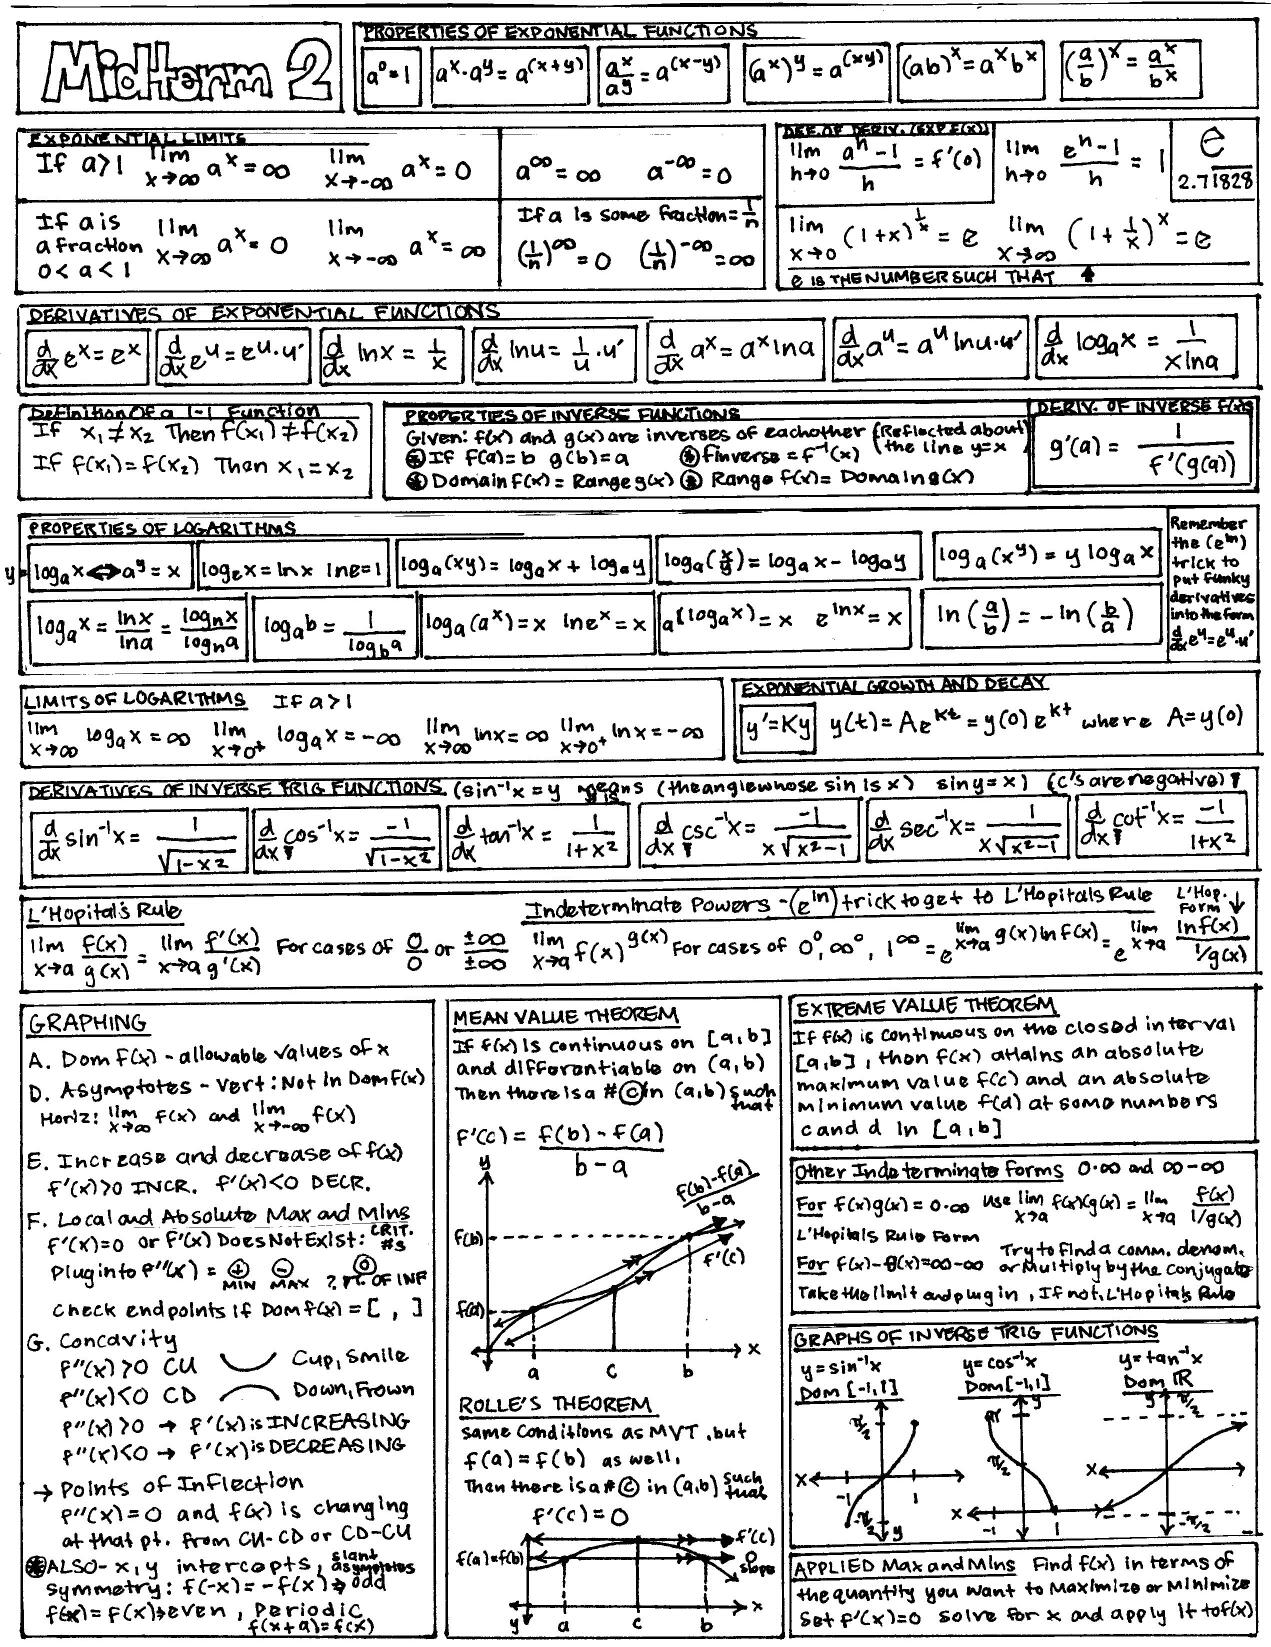 Midterm 2
PROPERTIES OF EXPONENTIAL FUNCTIONS
a⁰=1
aˣ·aʸ = a^(x+y)
aˣ/aʸ = a^(x-y)
(aˣ)ʸ = a^(xy)
(ab)ˣ = aˣbˣ
(a/b)ˣ = aˣ/bˣ
EXPONENTIAL LIMITS
If a>1 lim x→∞ aˣ = ∞ lim x→-∞ aˣ = 0
a^∞ = ∞ a^-∞ = 0
If a is a fraction 0<a<1 lim x→∞ aˣ = 0 lim x→-∞ aˣ = ∞
If a is some fraction = 1/n
(1/n)^∞ = 0 (1/n)^-∞ = ∞
DEF. OF DERIV. (EXP f(x))
lim h→0 (aʰ-1)/h = f'(0)
lim h→0 (eʰ-1)/h = 1
e
2.71828
lim x→0 (1+x)^(1/x) = e lim x→∞ (1+1/x)ˣ = e
e IS THE NUMBER SUCH THAT ↑
DERIVATIVES OF EXPONENTIAL FUNCTIONS
d/dx eˣ = eˣ
d/dx eᵘ = eᵘ·u'
d/dx lnx = 1/x
d/dx lnu = 1/u·u'
d/dx aˣ = aˣlna
d/dx aᵘ = aᵘ lnu·u'
d/dx logₐx = 1/(xlna)
Definition Of a 1-1 Function
If x₁≠x₂ Then f(x₁)≠f(x₂)
If f(x₁)=f(x₂) Then x₁=x₂
PROPERTIES OF INVERSE FUNCTIONS
Given: f(x) and g(x) are inverses of eachother (Reflected about the line y=x)
⊛ If f(a)=b g(b)=a ⊛ finverse = f⁻¹(x)
⊛ Domain f(x) = Range g(x) ⊛ Range f(x) = Domain g(x)
DERIV. OF INVERSE f(x)s
g'(a) = 1/f'(g(a))
PROPERTIES OF LOGARITHMS
y=logₐx ↔ aʸ = x
logₑx = lnx lne=1
logₐ(xy) = logₐx + logₐy
logₐ(x/y) = logₐx - logₐy
logₐ(xʸ) = y logₐx
logₐx = lnx/lna = logₙx/logₙa
logₐb = 1/log_b a
logₐ(aˣ) = x lneˣ = x
a^(logₐx) = x e^lnx = x
ln(a/b) = -ln(b/a)
Remember
the (e^ln)
trick to
put funky
derivatives
into the form
d/dx eᵘ = eᵘ·u'
LIMITS OF LOGARITHMS If a>1
lim x→∞ logₐx = ∞ lim x→0⁺ logₐx = -∞ lim x→∞ lnx = ∞ lim x→0⁺ lnx = -∞
EXPONENTIAL GROWTH AND DECAY
y'=Ky y(t) = Ae^kt = y(0)e^kt where A=y(0)
DERIVATIVES OF INVERSE TRIG FUNCTIONS (sin⁻¹x=y means (the angle whose sin is x) siny=x) (c's are negative)
y is
d/dx sin⁻¹x = 1/√(1-x²)
d/dx cos⁻¹x = -1/√(1-x²)
d/dx tan⁻¹x = 1/(1+x²)
d/dx csc⁻¹x = -1/(x√(x²-1))
d/dx sec⁻¹x = 1/(x√(x²-1))
d/dx cot⁻¹x = -1/(1+x²)
L'Hopital's Rule
lim x→a f(x)/g(x) = lim x→a f'(x)/g'(x) For cases of 0/0 or ±∞/±∞
Indeterminate Powers - (e^ln) trick to get to L'Hopitals Rule
L'Hop. Form ↓
lim x→a f(x)^g(x) For cases of 0⁰, ∞⁰, 1^∞ = e^(lim x→a g(x)lnf(x)) = e^(lim x→a lnf(x)/(1/g(x)))
GRAPHING
A. Dom f(x) - allowable values of x
D. Asymptotes - Vert: Not in Dom f(x)
Horiz: lim x→∞ f(x) and lim x→-∞ f(x)
E. Increase and decrease of f(x)
f'(x)>0 INCR. f'(x)<0 DECR.
F. Local and Absolute Max and Mins
f'(x)=0 or f'(x) Does Not Exist: CRIT. #s
Plug into f''(x) = ⊕ MIN ⊖ MAX 0 ? PT. OF INF
Check endpoints if Dom f(x) = [ , ]
G. Concavity
f''(x)>0 CU Cup, Smile
f''(x)<0 CD Down, Frown
f''(x)>0 → f'(x) is INCREASING
f''(x)<0 → f'(x) is DECREASING
→ Points of Inflection
f''(x)=0 and f(x) is changing
at that pt. from CU-CD or CD-CU
⊛ ALSO - x,y intercepts, slant asymptotes
symmetry: f(-x) = -f(x) → odd
f(-x) = f(x) → even, Periodic
f(x+a)=f(x)
MEAN VALUE THEOREM
If f(x) is continuous on [a,b]
and differentiable on (a,b)
Then there is a # ⓒ in (a,b) such that
f'(c) = (f(b)-f(a))/(b-a)
y
(f(b)-f(a))/(b-a)
f(b)
f'(c)
f(a)
x
a c b
ROLLE'S THEOREM
same conditions as MVT, but
f(a) = f(b) as well,
Then there is a # ⓒ in (a,b) such that
f'(c) = 0
f'(c)
f(a)=f(b)
0 slope
x
y a c b
EXTREME VALUE THEOREM
If f(x) is continuous on the closed interval
[a,b], then f(x) attains an absolute
maximum value f(c) and an absolute
minimum value f(d) at some numbers
c and d in [a,b]
Other Indeterminate Forms 0·∞ and ∞-∞
For f(x)g(x) = 0·∞ Use lim x→a f(x)g(x) = lim x→a f(x)/(1/g(x))
L'Hopitals Rule Form
For f(x)-g(x)=∞-∞ Try to find a comm. denom. or Multiply by the conjugate
Take the limit and plug in, If not, L'Hopital's Rule
GRAPHS OF INVERSE TRIG FUNCTIONS
y=sin⁻¹x
Dom [-1,1]
π/2
x
-1 1
-π/2
y
y=cos⁻¹x
Dom [-1,1]
y
π
π/2
x
-1 1
y=tan⁻¹x
Dom ℝ
y
π/2
x
-π/2
APPLIED Max and Mins Find f(x) in terms of
the quantity you want to Maximize or Minimize
Set f'(x)=0 solve for x and apply it to f(x)